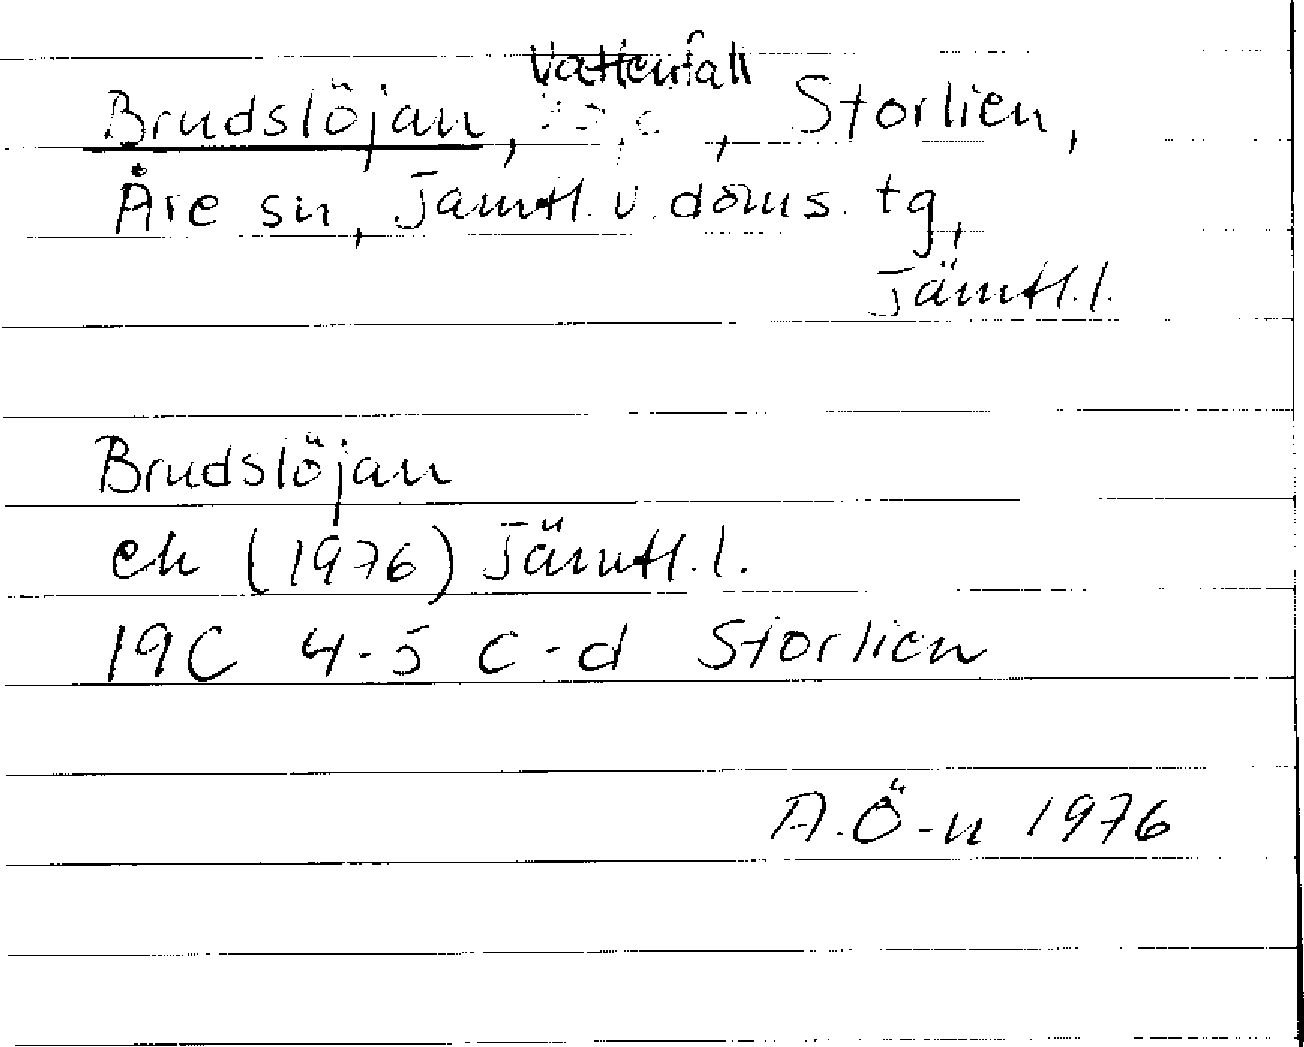 Vattenfall
Brudslöjan, , Storlien,
Åre sn, Jämtl. v. doms. tg,
Jämtl. l.
Brudslöjan
ek (1976) Jämtl. l.
19C 4-5 c-d Storlien
A. Ö-n 1976